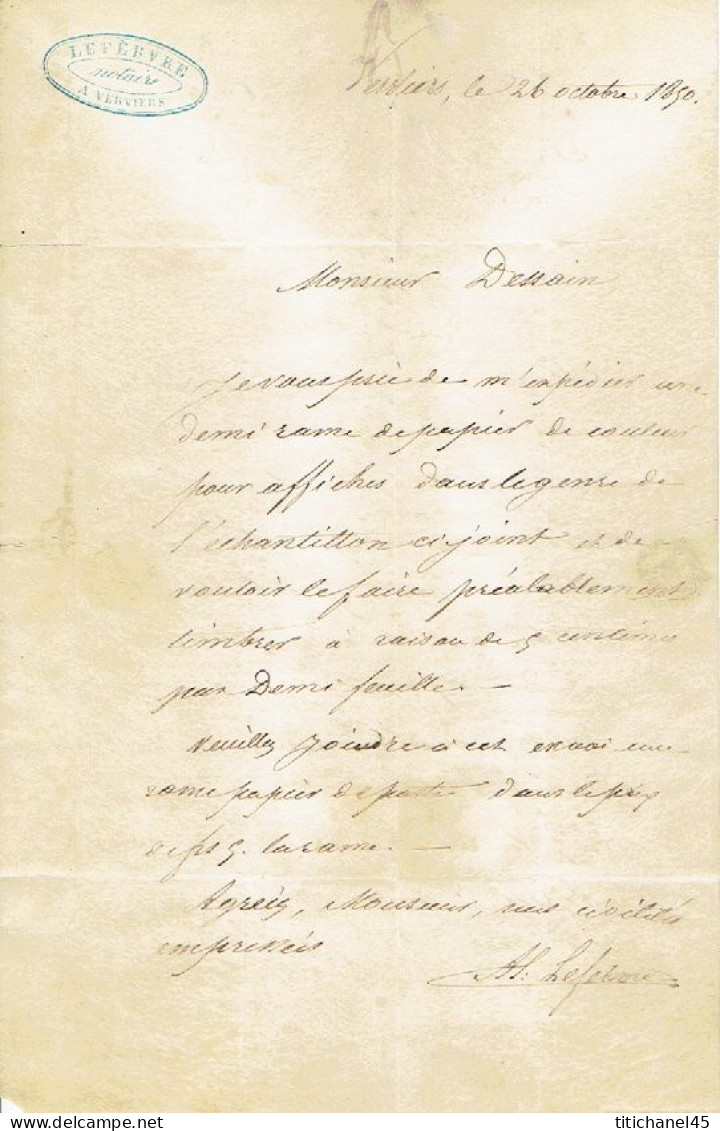 LEFÈBVRE
notaire
A VERVIERS
Verviers, le 26 octobre 1850.
Monsieur Dessain
Je vous prie de m'expédier une
demi rame de papier de couleur
pour affiches dans le genre de
l'échantillon ci joint et de
vouloir le faire préalablement
timbrer à raison de 5 centimes
par Demi feuille. —
Veuillez joindre à cet envoi une
rame papier de poste dans le prix
de frs 5. la rame. —
Agréez, Monsieur, mes civilités
empressées
Al. Lefebvre
titichanel45